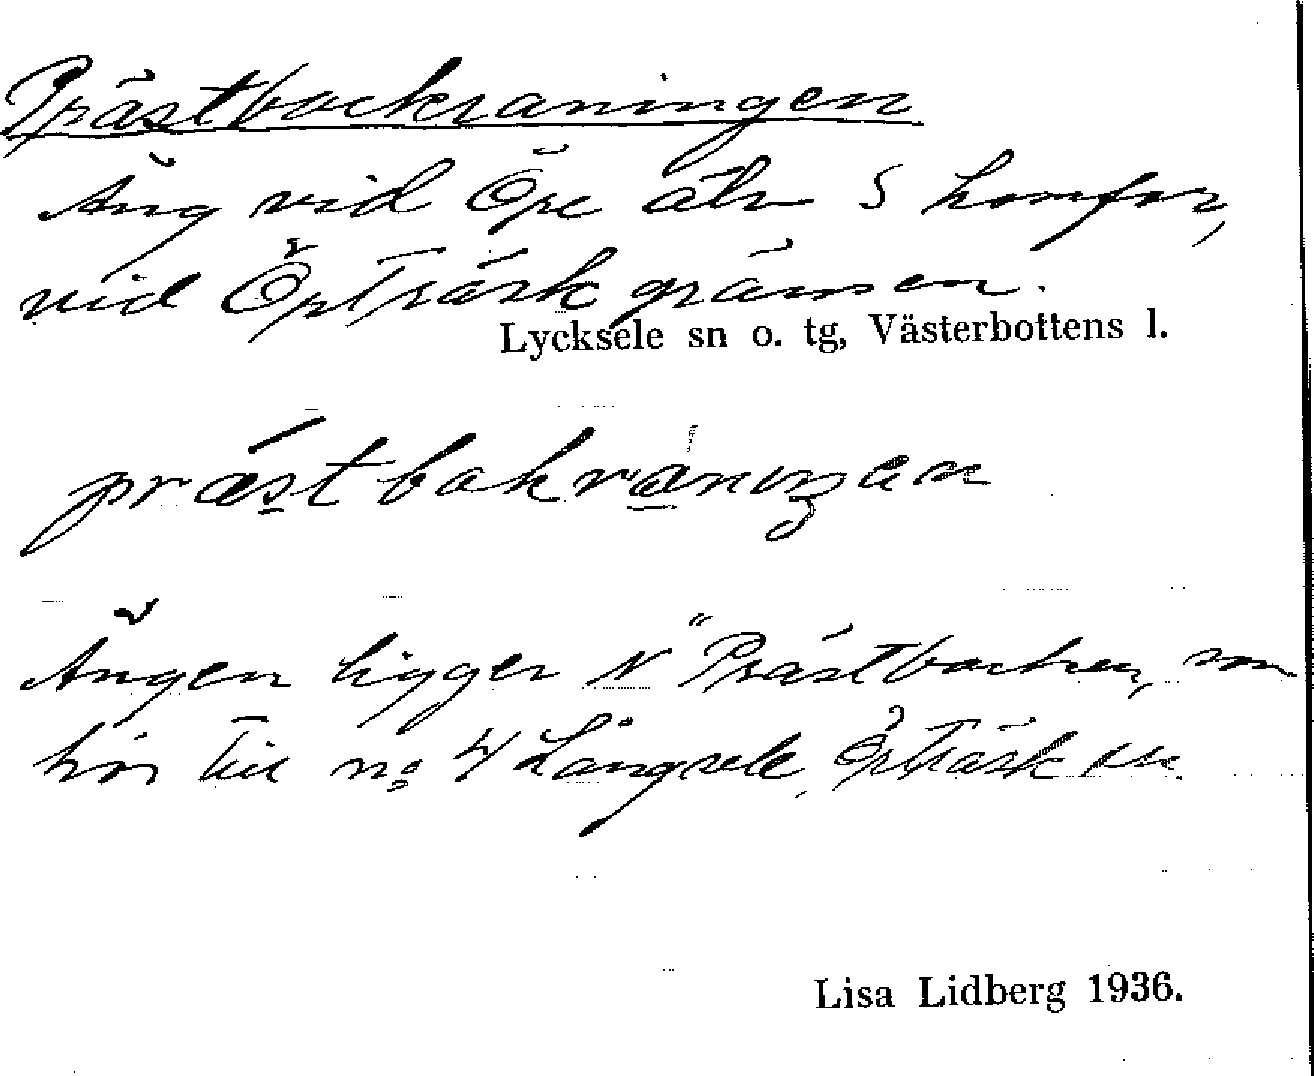 Prästbockraningen
Äng vid Öre älv S homfor,
vid Örträsk gränsen.
Lycksele sn o. tg, Västerbottens l.
præstbokranıŋen
Ängen ligger N "Prästbocken, som
hör till no 4 Långsele, Örträsk sn.
Lisa Lidberg 1936.